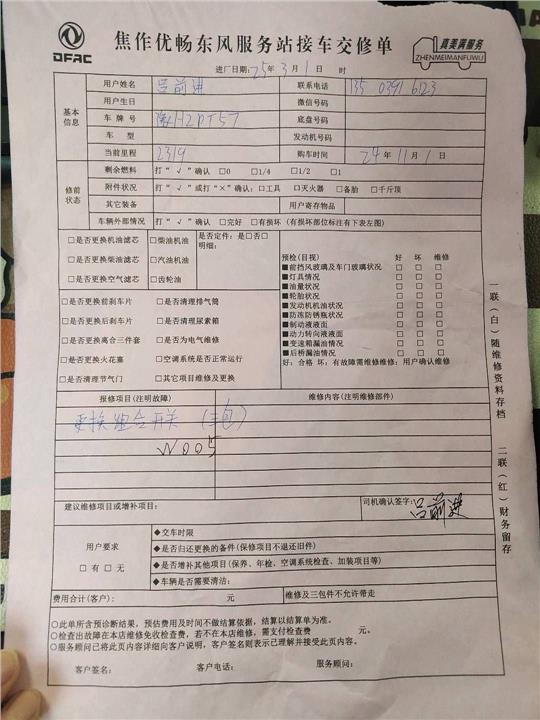 DFAC
焦作优畅东风服务站接车交修单
真美满服务
ZHENMEIMANFUWU
进厂日期: 25年 3月 1日 时
基本信息
用户姓名 吕前进 联系电话 135 0391 6123
用户生日 微信号码
车牌号 豫H2DT57 底盘号码
车型 发动机号码
当前里程 2319 购车时间 24年11月1日
修前状态
剩余燃料 打“√”确认 □0 □1/4 □1/2 □1
附件状况 打“√”或打“×”确认: □工具 □灭火器 □备胎 □千斤顶
其它装备 用户寄存物品
车辆外部情况 打“√”确认 □完好 □有损坏 (有损坏部位标注有下表左图)
□是否更换机油滤芯 □柴油机油 是否定件: 是□否□
明细:
□是否更换柴油滤芯 □汽油机油
□是否更换空气滤芯 □齿轮油
□是否更换前刹车片 □是否清理排气筒
□是否更换后刹车片 □是否清理尿素箱
□是否更换离合三件套 □是否为电气维修
□是否更换火花塞 □空调系统是否正常运行
□是否清理节气门 □其它项目维修及更换
预检(目视) 好 坏 维修
■前挡风玻璃及车门玻璃状况 □ □ □
■灯具情况 □ □ □
■油量状况 □ □ □
■轮胎状况 □ □ □
■发动机机油状况 □ □ □
■防冻防锈瓶状况 □ □ □
■制动液液面 □ □ □
■动力转向液液面 □ □ □
■变速箱漏油情况 □ □ □
■后桥漏油情况 □ □ □
好: 合格 坏: 有故障需维修维修: 用户确认维修
报修项目(注明故障) 维修内容(注明维修部件)
更换组合开关 (三包)
W005
建议维修项目或增补项目: 司机确认签字: 吕前进
用户要求
□有□无
◆交车时限
◆是否归还更换的备件(保修项目不退还旧件)
◆是否增补其他项目(保养、年检、空调系统检查、加装项目等)
◆车辆是否需要清洁:
费用合计(客户): 元 维修及三包件不允许带走
○此单所含预诊断结果, 预估费用及时间不做结算依据, 结算以结算单为准。
○检查出故障在本店维修免收检查费, 若不在本店维修, 需支付检查费 元。
○服务顾问已将此页内容详细向客户说明, 客户签名则表示已理解并接受此页内容。
客户签名: 客户电话: 服务顾问:
一联(白)随维修资料存档
二联(红)财务留存